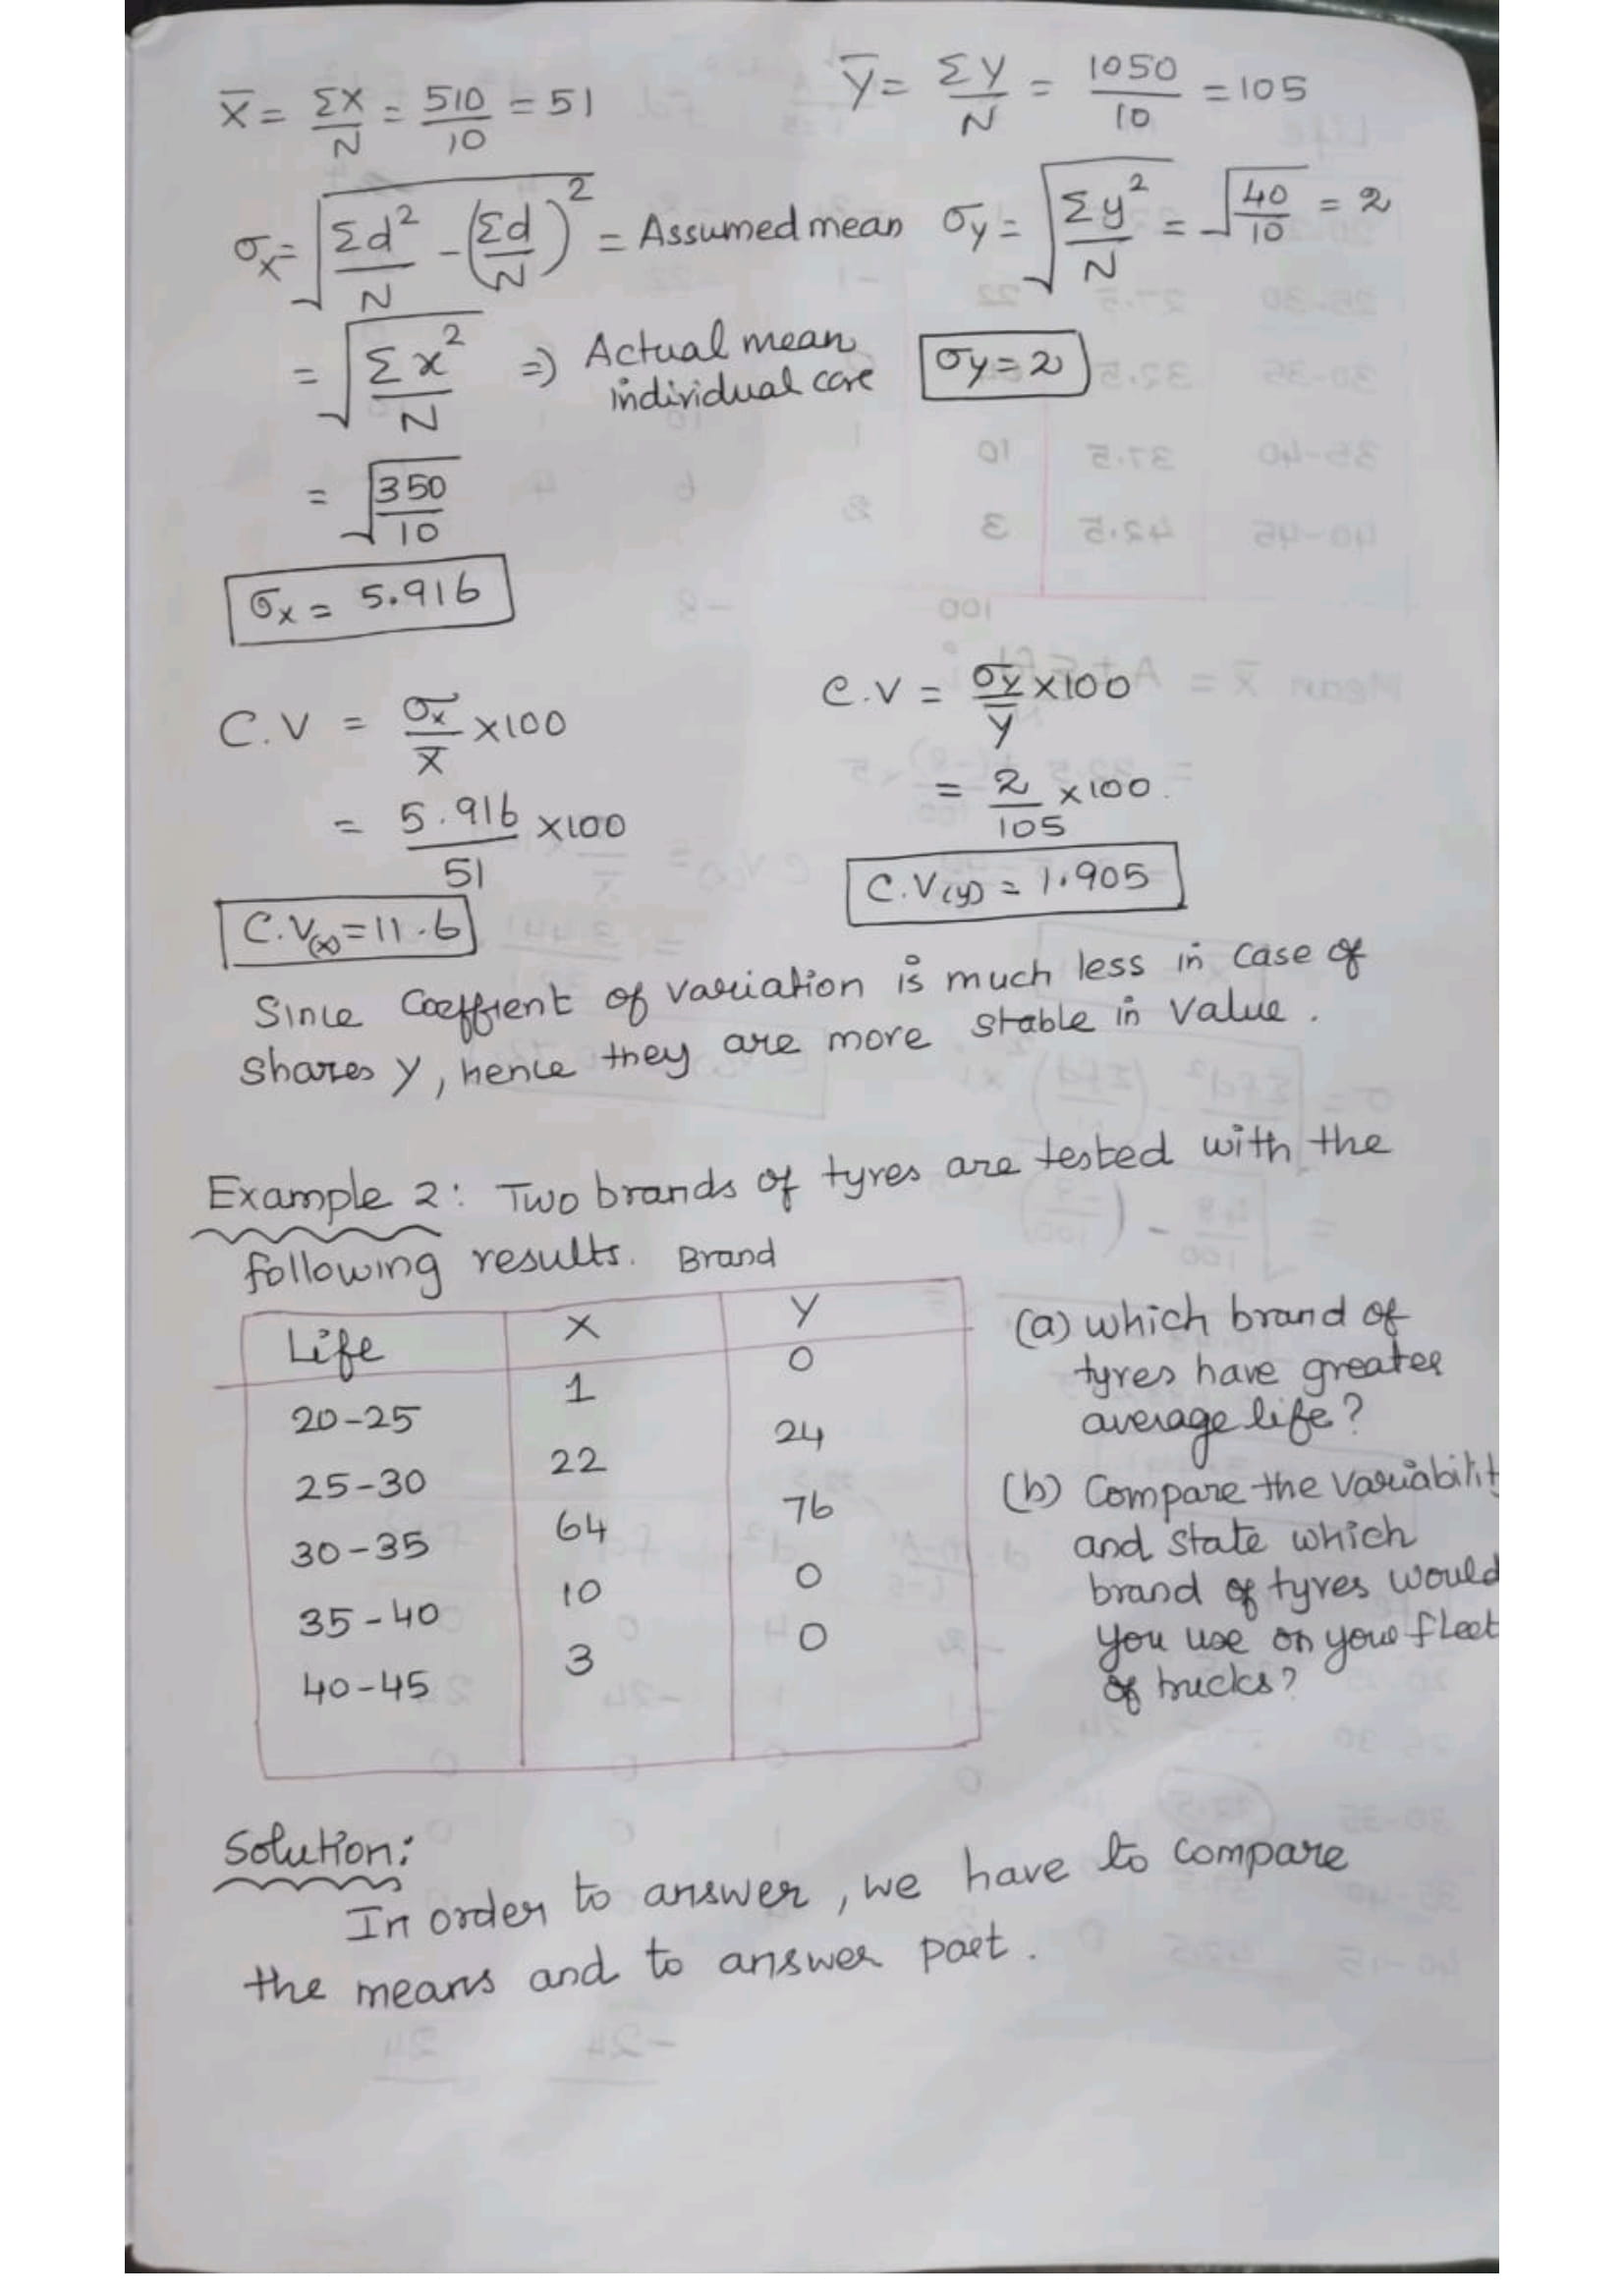 X̄ = ΣX/N = 510/10 = 51
Ȳ = ΣY/N = 1050/10 = 105
σx = √(Σd²/N - (Σd/N)²) = Assumed mean
σy = √(Σy²/N) = √(40/10) = 2
= √(Σx²/N) ⇒ Actual mean
individual care
σy = 2
= √(350/10)
σx = 5.916
C.V = σx/X̄ ×100
= 5.916/51 ×100
C.V(x) = 11.6
C.V = σy/Ȳ ×100
= 2/105 ×100.
C.V(y) = 1.905
Since Coeffient of variation is much less in case of
Shares y, hence they are more stable in value.
Example 2: Two brands of tyres are tested with the
following results. Brand
Life X Y
20-25 1 0
25-30 22 24
30-35 64 76
35-40 10 0
40-45 3 0
(a) which brand of
tyres have greater
average life?
(b) Compare the variabilit
and state which
brand of tyres would
you use on your fleet
of trucks?
Solution:
In order to answer, we have to compare
the means and to answer part.